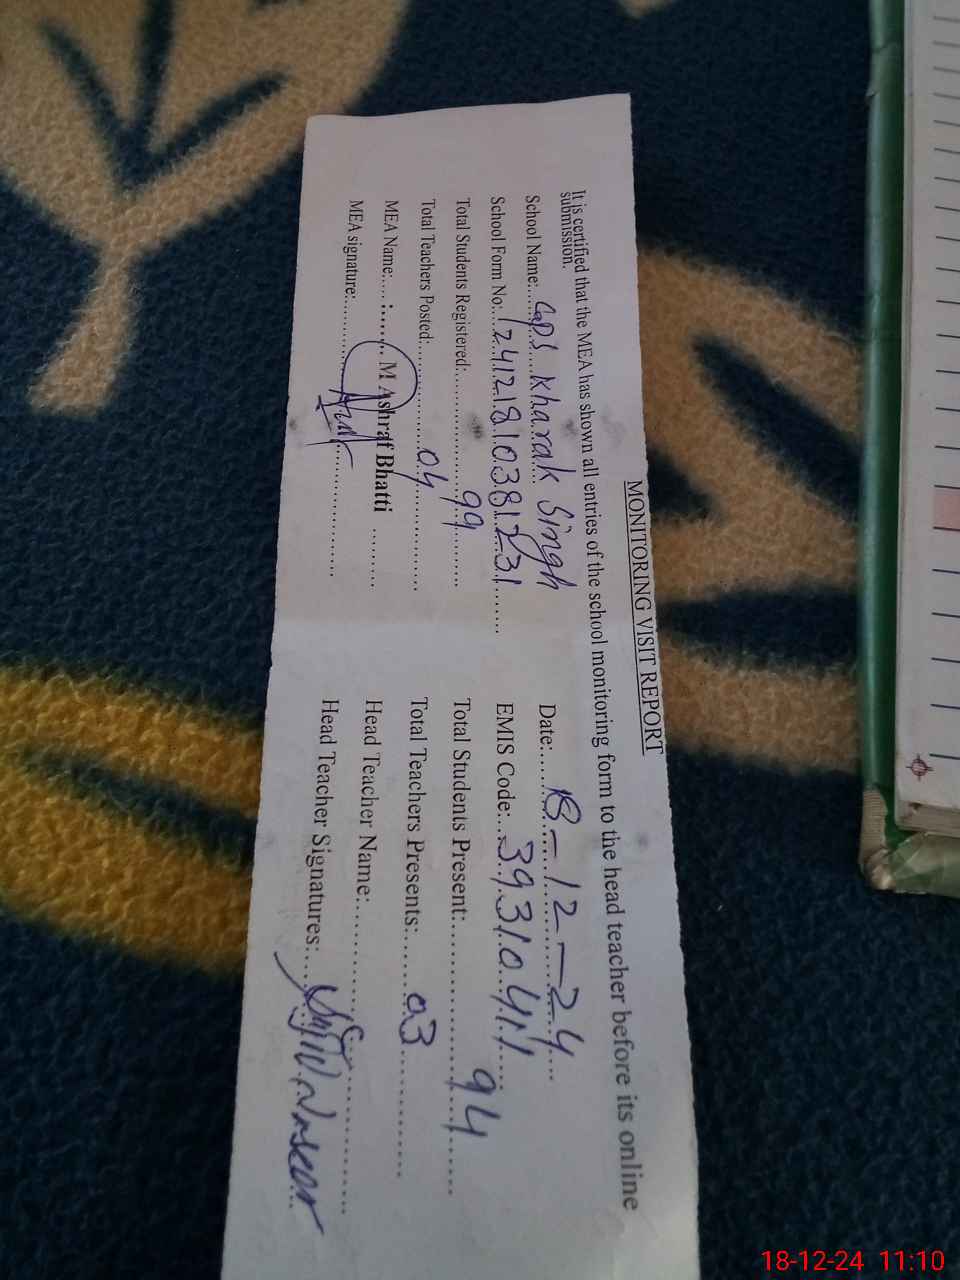 MONITORING VISIT REPORT
It is certified that the MEA has shown all entries of the school monitoring form to the head teacher before its online
submission.
School Name:......GPS Kharak Singh
Date:.......18-12-24...
School Form No:.124121810381231.......
EMIS Code:...39310411....
Total Students Registered:...............99............
Total Students Present:...............94........
Total Teachers Posted:...............04...............
Total Teachers Presents:......03..............
MEA Name:..... :........ M Ashraf Bhatti ........
Head Teacher Name:...............................
MEA signature:..............................
Head Teacher Signatures:....
18-12-24 11:10